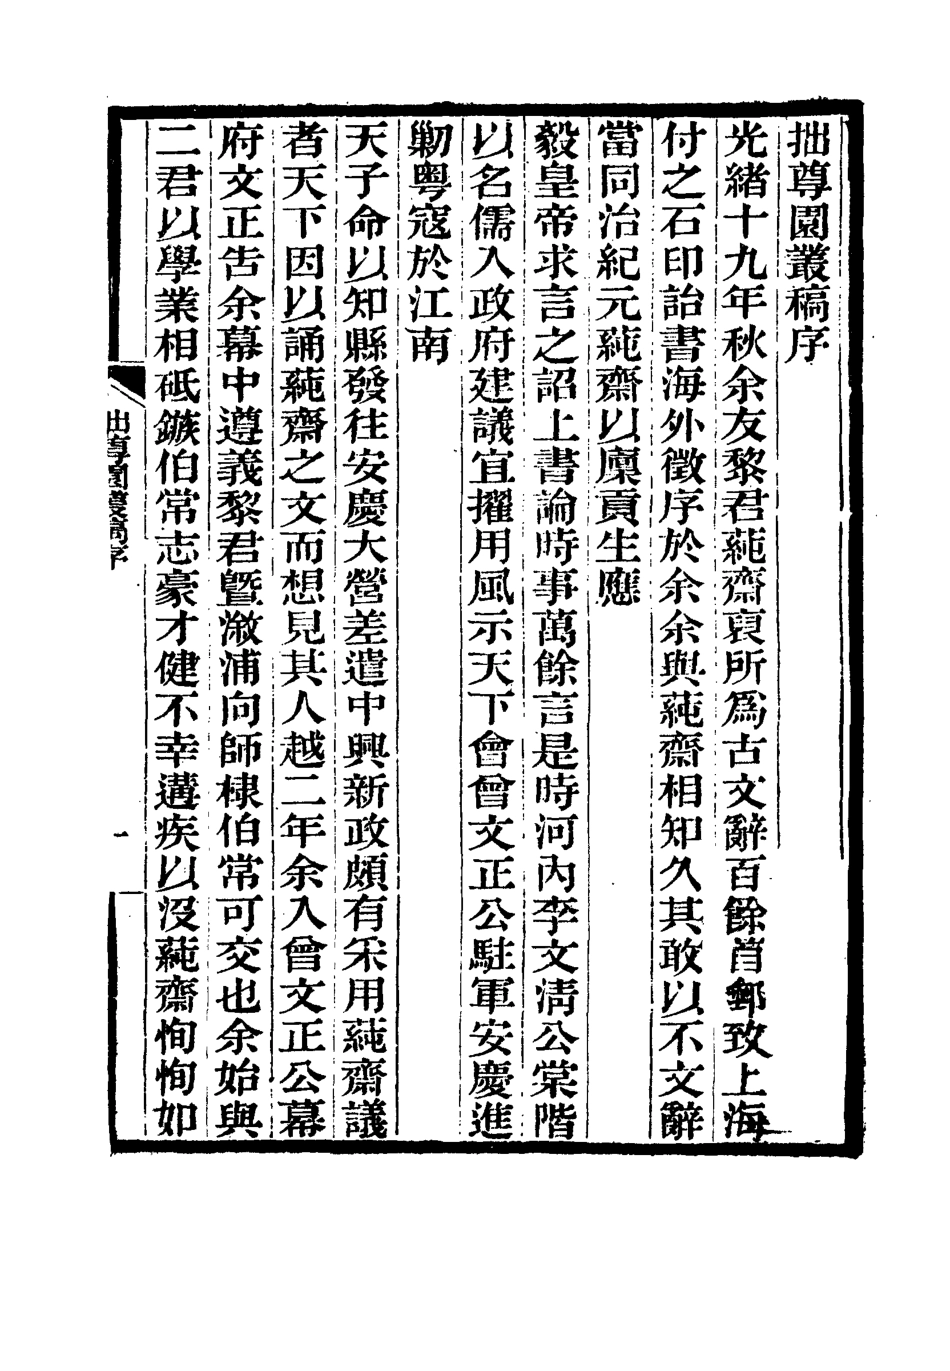 拙尊園叢稿序
光緒十九年秋余友黎君蒓齋裒所爲古文辭百餘首郵致上海
付之石印詒書海外徵序於余余與蒓齋相知久其敢以不文辭
當同治紀元蒓齋以廩貢生應
毅皇帝求言之詔上書論時事萬餘言是時河內李文淸公棠階
以名儒入政府建議宜擢用風示天下會曾文正公駐軍安慶進
勦粵寇於江南
天子命以知縣發往安慶大營差遣中興新政頗有采用蒓齋議
者天下因以誦蒓齋之文而想見其人越二年余入曾文正公幕
府文正吿余幕中遵義黎君曁漵浦向師棣伯常可交也余始與
二君以學業相砥鏃伯常志豪才健不幸遘疾以沒蒓齋恂恂如
拙尊園叢稿序
一